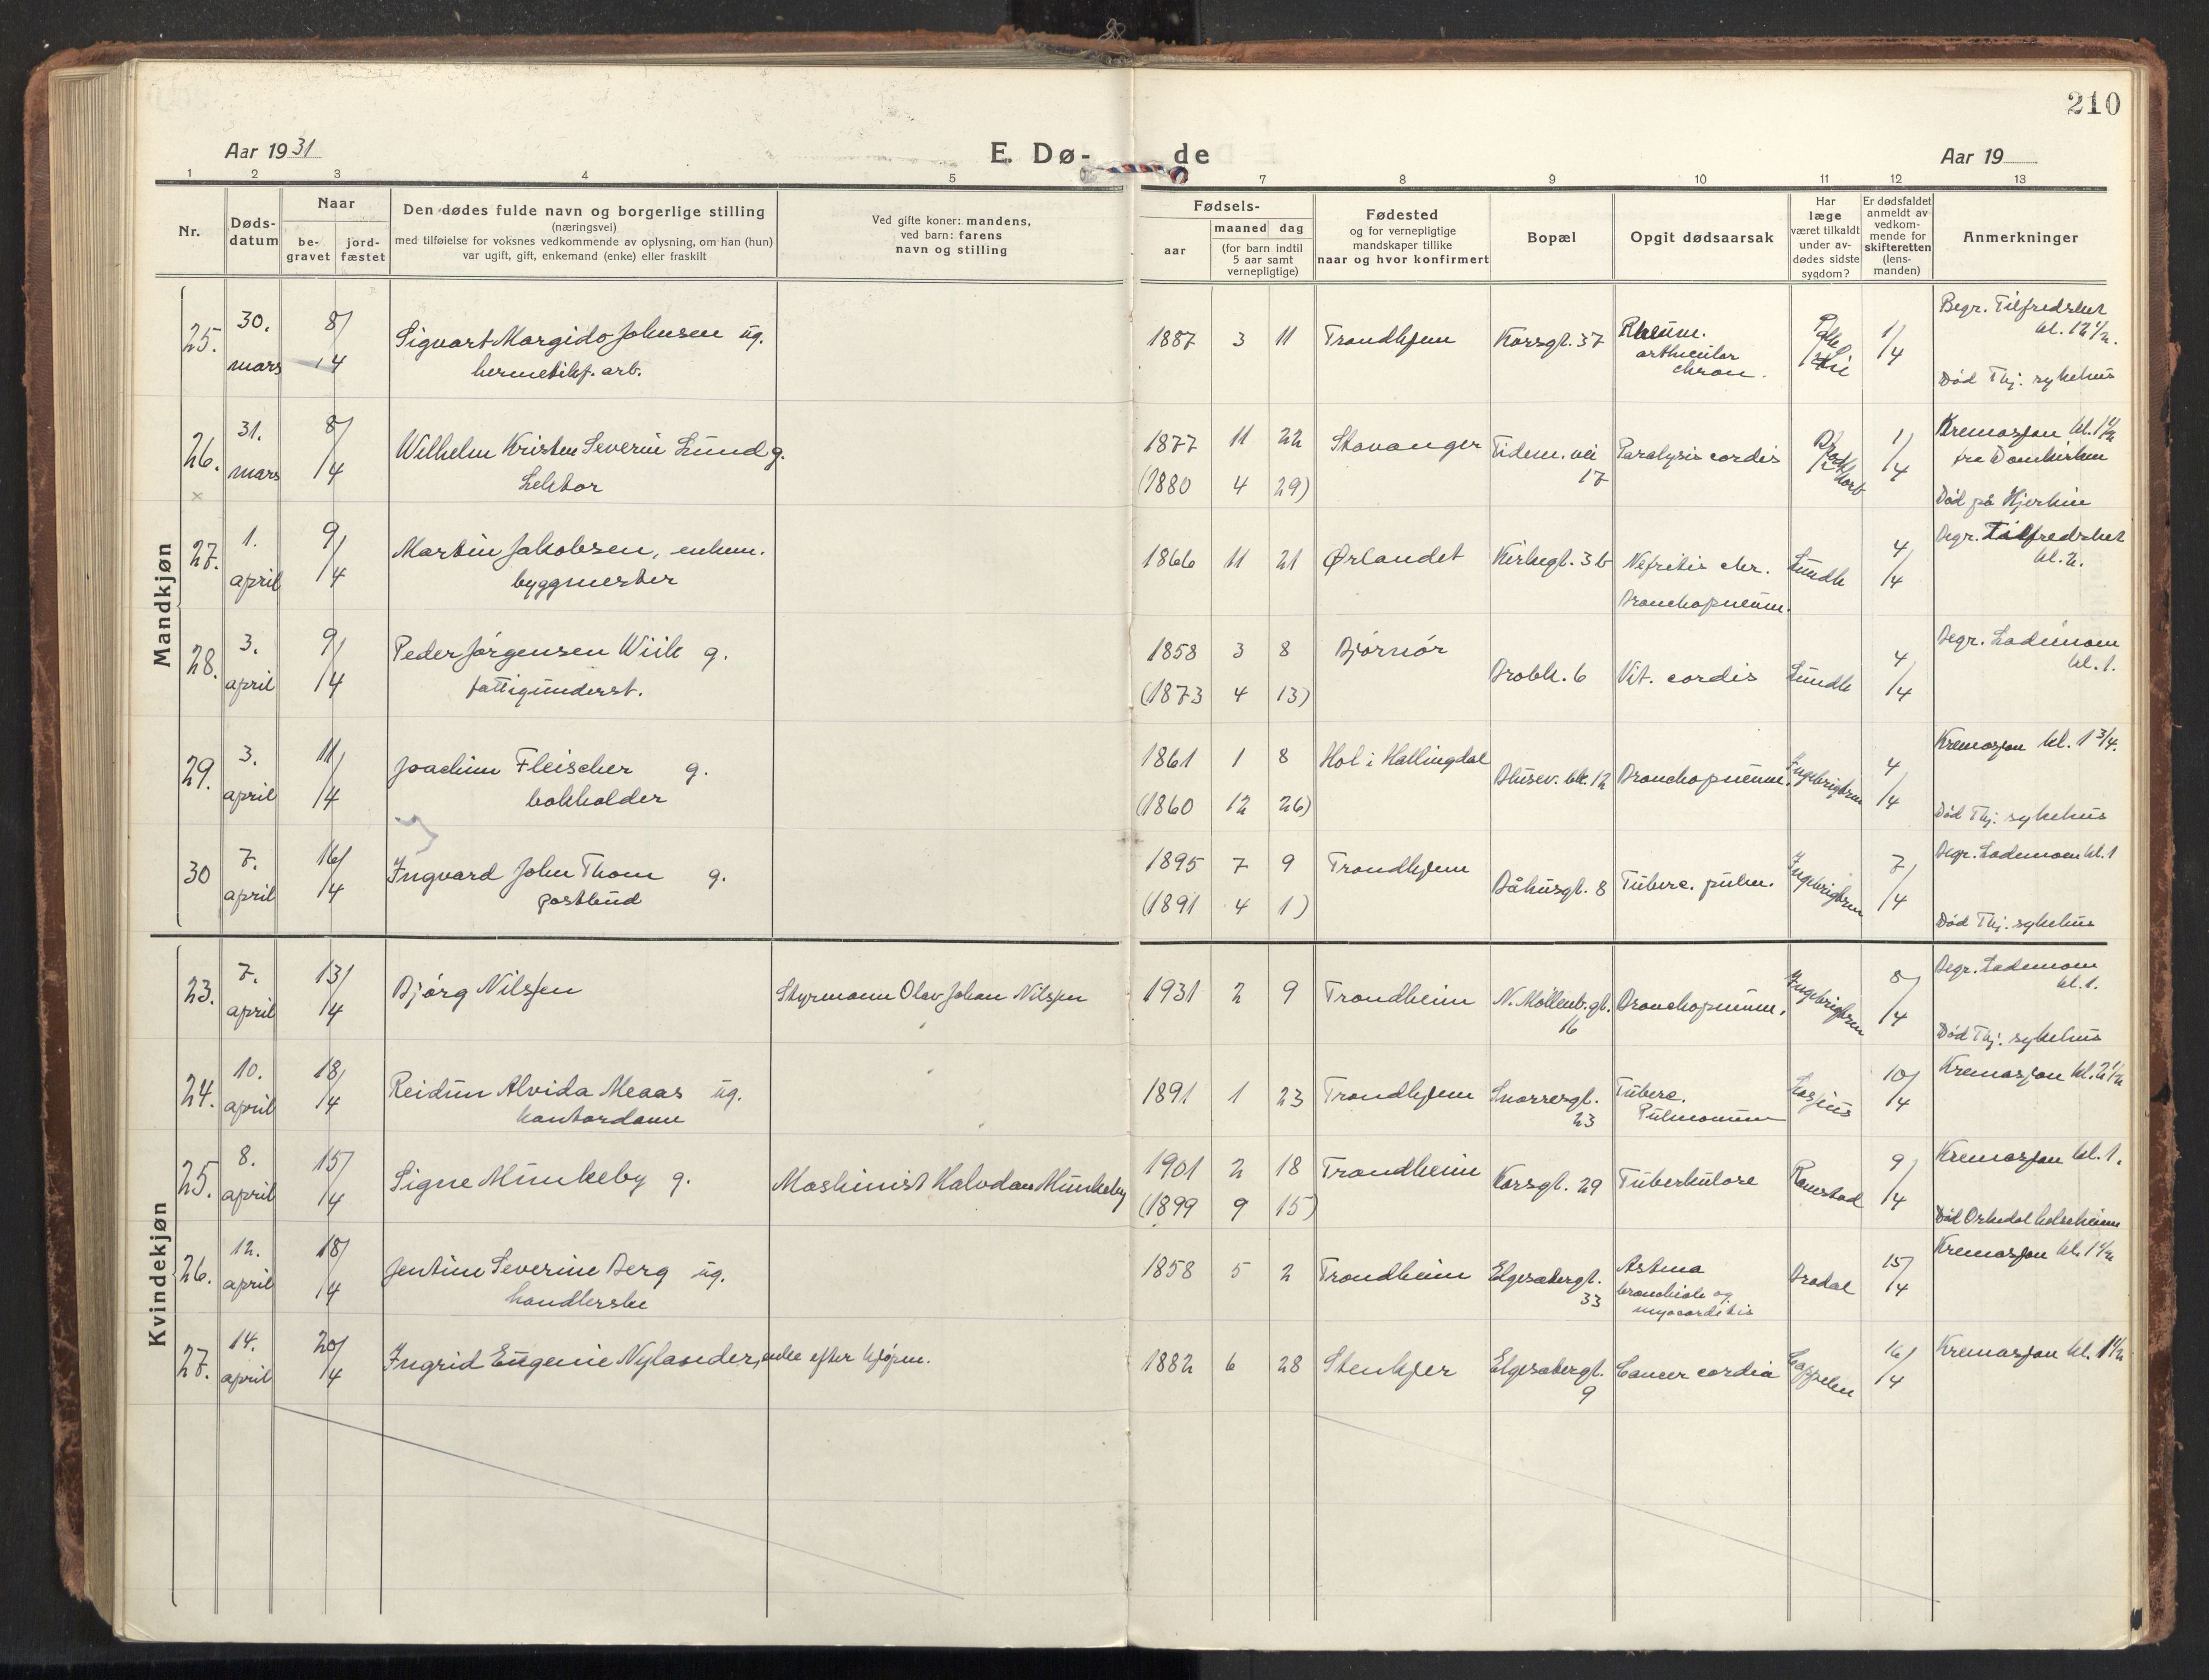 210
Aar 1931
E. Dø-
de
Aar 19
1 2 3 4 5 7 8 9 10 11 12 13
Nr.
Døds-
datum
Naar
be-
gravet
jord-
fæstet
Den dødes fulde navn og borgerlige stilling
(næringsvei)
med tilføielse for voksnes vedkommende av oplysning, om han (hun)
var ugift, gift, enkemand (enke) eller fraskilt
Ved gifte koner: mandens,
ved barn: farens
navn og stilling
Fødsels-
aar
maaned dag
(for barn indtil
5 aar samt
vernepligtige)
Fødested
og for vernepligtige
mandskaper tillike
naar og hvor konfirmert
Bopæl
Opgit dødsaarsak
Har
læge
været tilkaldt
under av-
dødes sidste
sygdom?
Er dødsfaldet
anmeldt av
vedkom-
mende for
skifteretten
(lens-
manden)
Anmerkninger
Mandkjøn
25. 30. mars 8/4
Sigvart Margido Johnsen ug.
hermetikf. arb.
1887 3 11 Trondhjem Korsgt. 37
Rheum.
arthicular
chron.
1/4
Begr. Tilfredshet
kl. 12 1/2.
Død Thj. sykehus
26. 31. mars 8/4
Wilhelm Kristen Severin Lund g.
Lektor
1877 11 22 Stavanger Tidem. vei
17
(1880 4 29)
Paralysis cordis
1/4
Kremasjon kl. 1 1/2
fra Domkirken
Død på Hjerkin
27. 1. april 9/4
Martin Jakobsen, enkem.
byggmester
1866 11 21 Ørlandet Kirkegt. 3b Nefritis chr.
Bronchopneum.
Lundh 4/4
Begr. Tilfredshet
kl. 2.
28. 3. april 9/4
Peder Jørgensen Wiik g.
fattigunderst.
1858 3 8 Bjørnør
(1873 4 13)
Brobk. 6 Vit. cordis Lundh 4/4
Begr. Lademoen
kl. 1.
29. 3. april 11/4
Joachim Fleischer g.
bokholder
1861 1 8 Hol i Hallingdal
(1860 12 26)
Blusev. bk. 12 Bronchopneum. Ingebrigtsen 4/4
Kremasjon kl. 1 3/4.
Død Thj. sykehus
30 7. april 16/4
Ingvard John Thom g.
postbud
1895 7 9 Trondhjem
(1891 4 1)
Båhusgt. 8 Tuberc. pulm. Ingebrigtsen 7/4
Begr. Lademoen kl. 1
Død Thj. sykehus
Kvindekjøn
23. 7. april 13/4
Bjørg Nilssen
Styrmann Olav Johan Nilssen
1931 2 9 Trondheim N. Møllenb. gt.
16
Bronchopneum. Ingebrigtsen 8/4
Begr. Lademoen
kl. 1.
Død Thj. sykehus
24. 10. april 18/4
Reidun Alvida Meaas ug.
kontordame
1891 1 23 Trondhjem Snorregt.
23
Tuberc.
Pulmonum
10/4
Kremasjon kl. 2 1/2
25. 8. april 15/4
Signe Munkeby g.
Maskinist Halvdan Munkeby
1901 2 18 Trondheim
(1899 9 15)
Korsgt. 29 Tuberkulose Ramstad 9/4
Kremasjon kl. 1.
Død Orkedal helseheim
26. 12. april 18/4
Jentine Severine Berg ug.
handlerske
1858 5 2 Trondheim Elgesætergt.
33
Astma
bronchiale og
myocarditis
Brodal 15/4
Kremasjon kl. 1 1/2
27. 14. april 20/4
Ingrid Eugenie Nylander, enke efter kjøpm.
1882 6 28 Stenkjer Elgesætergt.
9
Cancer cardia Cappelen 16/4
Kremasjon kl. 1 1/2